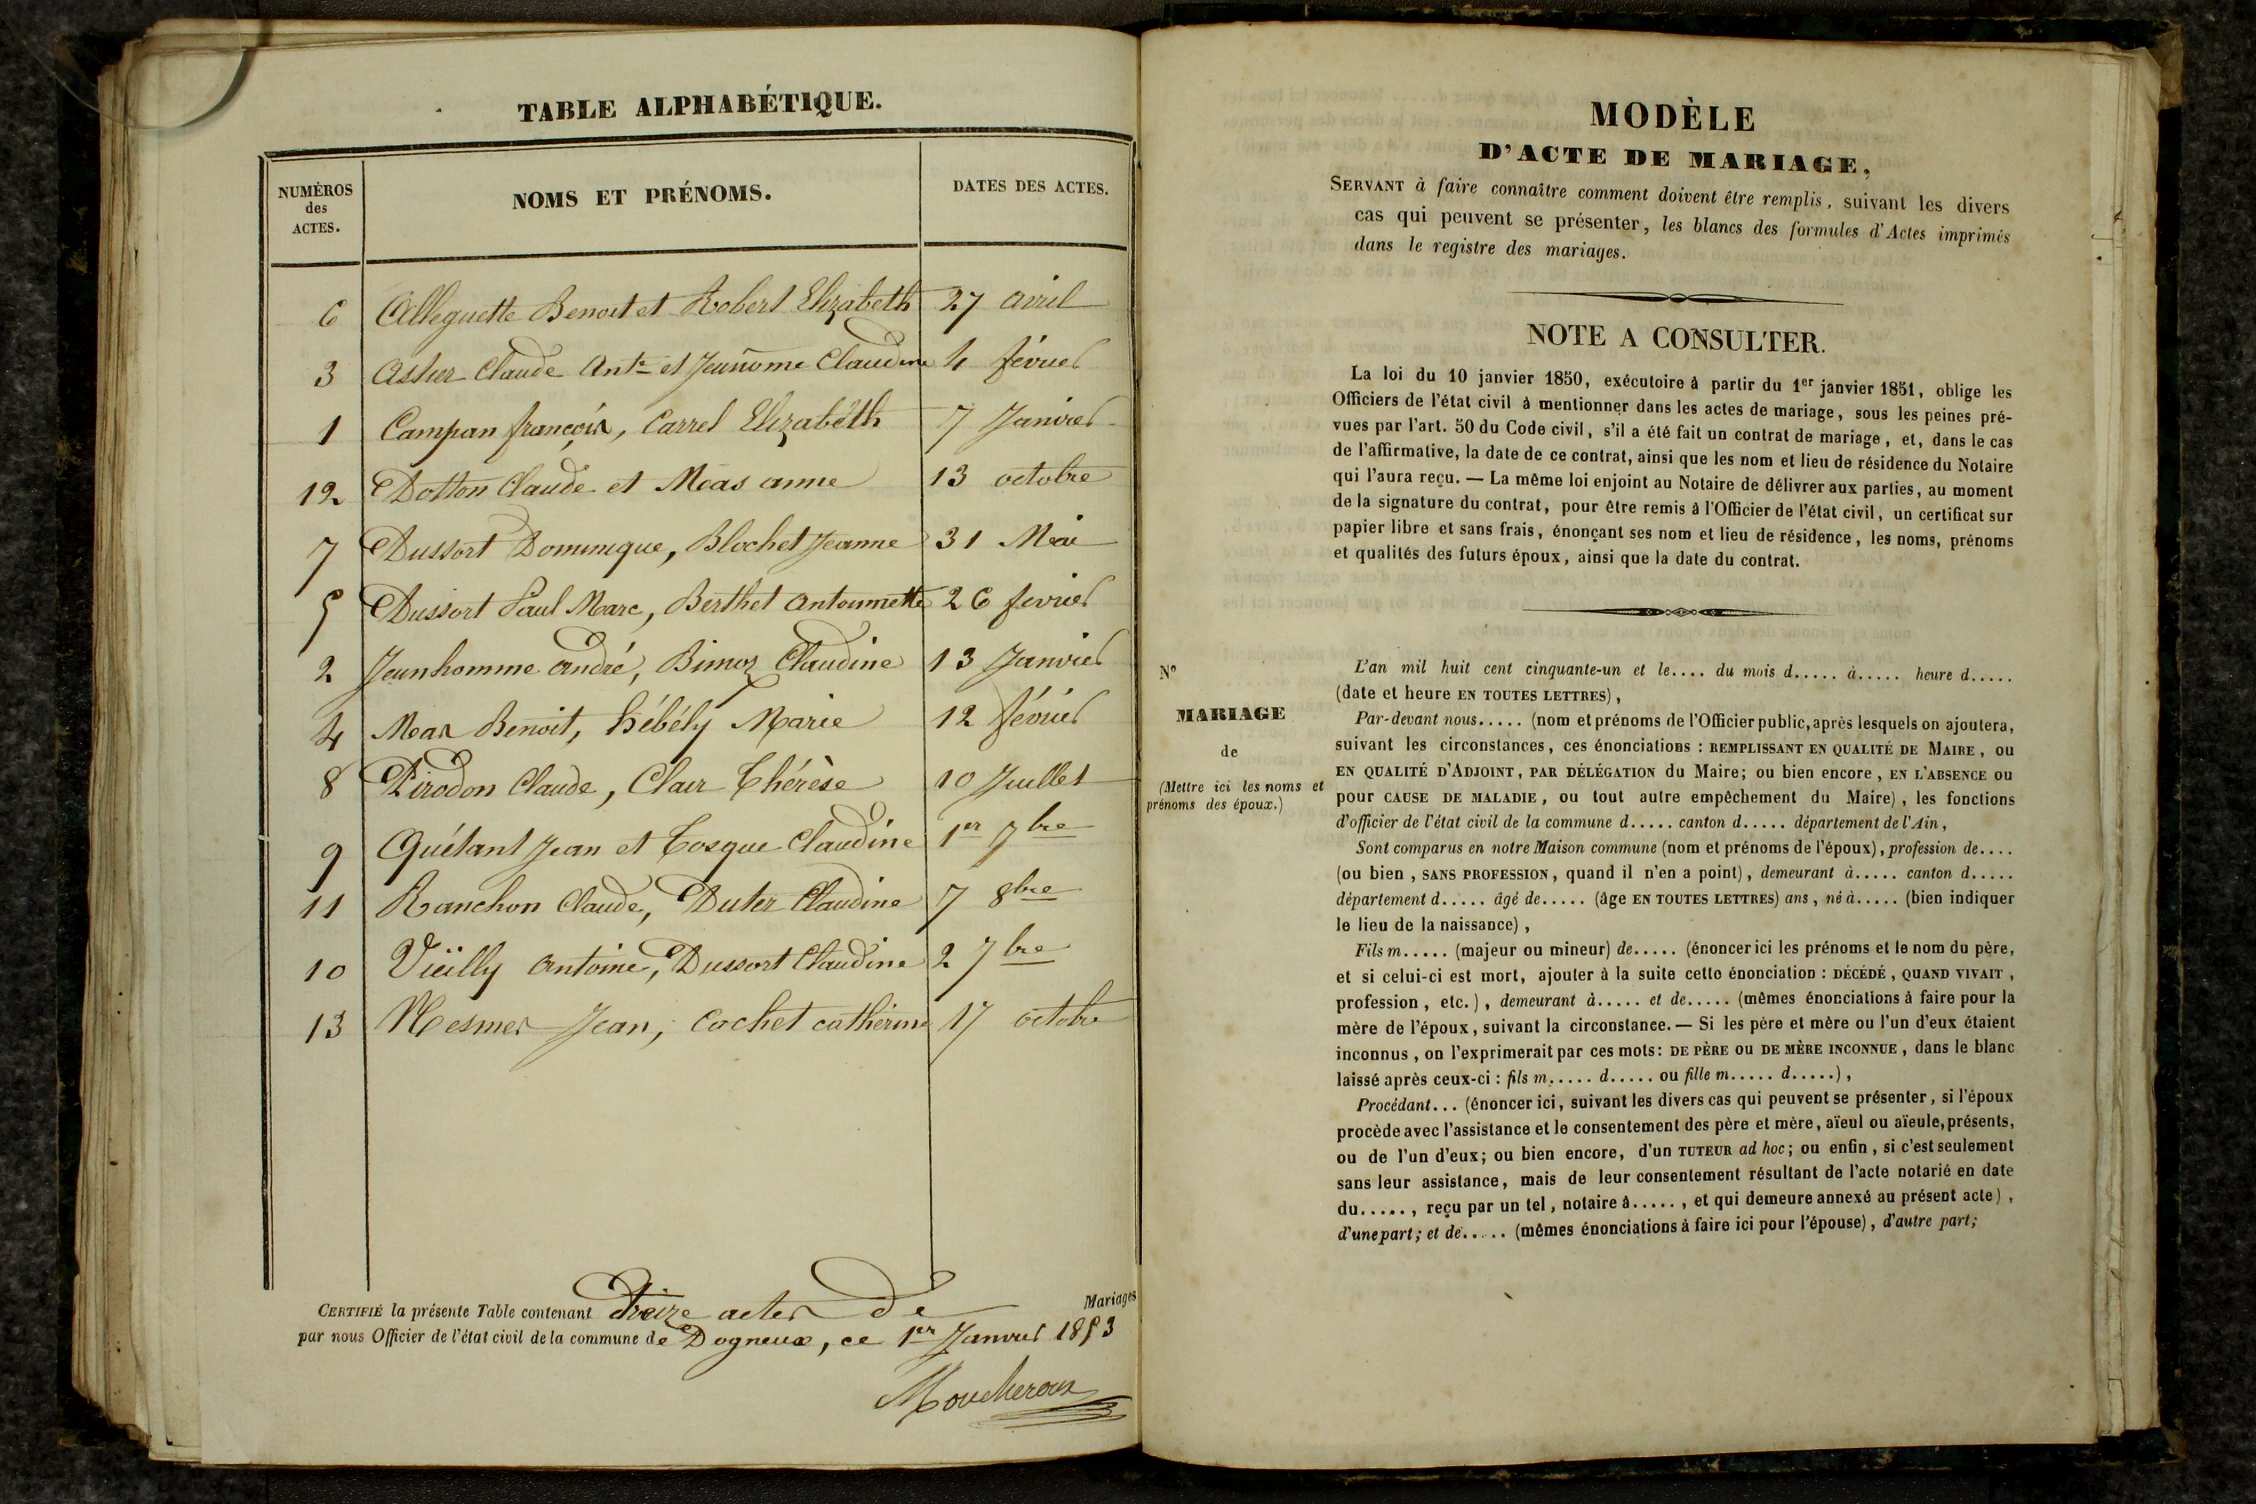 TABLE ALPHABÉTIQUE.
NUMÉROS des ACTES. NOMS ET PRÉNOMS. DATES DES ACTES.
6 Alleguette Benoit et Robert Elizabeth 27 avril
3 Astier Claude Ant.e et Jeunome Claudine 4 février
1 Campan françois, Carrel Elizabéth 7 Janvier
12 Dotton Claude et Méas anne 13 octobre
7 Dussort Dominique, Blochet Jeanne 31 Mai
5 Dussort Paul Marc, Berthet antoinette 26 fevrier
2 Jeunhomme andré, Bimoz Claudine 13 Janvier
4 Meas Benoit, hébély Marie 12 février
8 Pirodon Claude, Clair Thérèse 10 Juillet
9 Quétant Jean et Tosque Claudine 1er 7bre
11 Ranchon Claude, Duter Claudine 7 8bre
10 Vieilly antoine, Dussort Claudine 2 7bre
13 Mesmer Jean, Cochet catherine 17 octobre
CERTIFIÉ la présente Table contenant Treize actes de Mariages
par nous Officier de l'état civil de la commune de Dogneux, ce 1er Janvier 1853
Moucheroux
MODÈLE
D'ACTE DE MARIAGE,
SERVANT à faire connaître comment doivent être remplis, suivant les divers
cas qui peuvent se présenter, les blancs des formules d'Actes imprimés
dans le registre des mariages.
NOTE A CONSULTER.
La loi du 10 janvier 1850, exécutoire à partir du 1er janvier 1851, oblige les
Officiers de l'état civil à mentionner dans les actes de mariage, sous les peines pré-
vues par l'art. 50 du Code civil, s'il a été fait un contrat de mariage, et, dans le cas
de l'affirmative, la date de ce contrat, ainsi que les nom et lieu de résidence du Notaire
qui l'aura reçu. — La même loi enjoint au Notaire de délivrer aux parties, au moment
de la signature du contrat, pour être remis à l'Officier de l'état civil, un certificat sur
papier libre et sans frais, énonçant ses nom et lieu de résidence, les noms, prénoms
et qualités des futurs époux, ainsi que la date du contrat.
N°
MARIAGE
de
(Mettre ici les noms et
prénoms des époux.)
L'an mil huit cent cinquante-un et le.... du mois d..... à..... heure d.....
(date et heure EN TOUTES LETTRES),
Par-devant nous..... (nom et prénoms de l'Officier public, après lesquels on ajoutera,
suivant les circonstances, ces énonciations : REMPLISSANT EN QUALITÉ DE MAIRE, ou
EN QUALITÉ D'ADJOINT, PAR DÉLÉGATION du Maire; ou bien encore, EN L'ABSENCE ou
pour CAUSE DE MALADIE, ou tout autre empêchement du Maire), les fonctions
d'officier de l'état civil de la commune d..... canton d..... département de l'Ain,
Sont comparus en notre Maison commune (nom et prénoms de l'époux), profession de....
(ou bien, SANS PROFESSION, quand il n'en a point), demeurant à..... canton d.....
département d..... âgé de..... (âge EN TOUTES LETTRES) ans, né à..... (bien indiquer
le lieu de la naissance),
Fils m..... (majeur ou mineur) de..... (énoncer ici les prénoms et le nom du père,
et si celui-ci est mort, ajouter à la suite cette énonciation : DÉCÉDÉ, QUAND VIVAIT,
profession, etc.), demeurant à..... et de..... (mêmes énonciations à faire pour la
mère de l'époux, suivant la circonstance. — Si les père et mère ou l'un d'eux étaient
inconnus, on l'exprimerait par ces mots: DE PÈRE ou DE MÈRE INCONNUE, dans le blanc
laissé après ceux-ci : fils m..... d..... ou fille m..... d.....),
Procédant... (énoncer ici, suivant les divers cas qui peuvent se présenter, si l'époux
procède avec l'assistance et le consentement des père et mère, aïeul ou aïeule, présents,
ou de l'un d'eux; ou bien encore, d'un TUTEUR ad hoc; ou enfin, si c'est seulement
sans leur assistance, mais de leur consentement résultant de l'acte notarié en date
du....., reçu par un tel, notaire à....., et qui demeure annexé au présent acte),
d'une part; et de..... (mêmes énonciations à faire ici pour l'épouse), d'autre part;